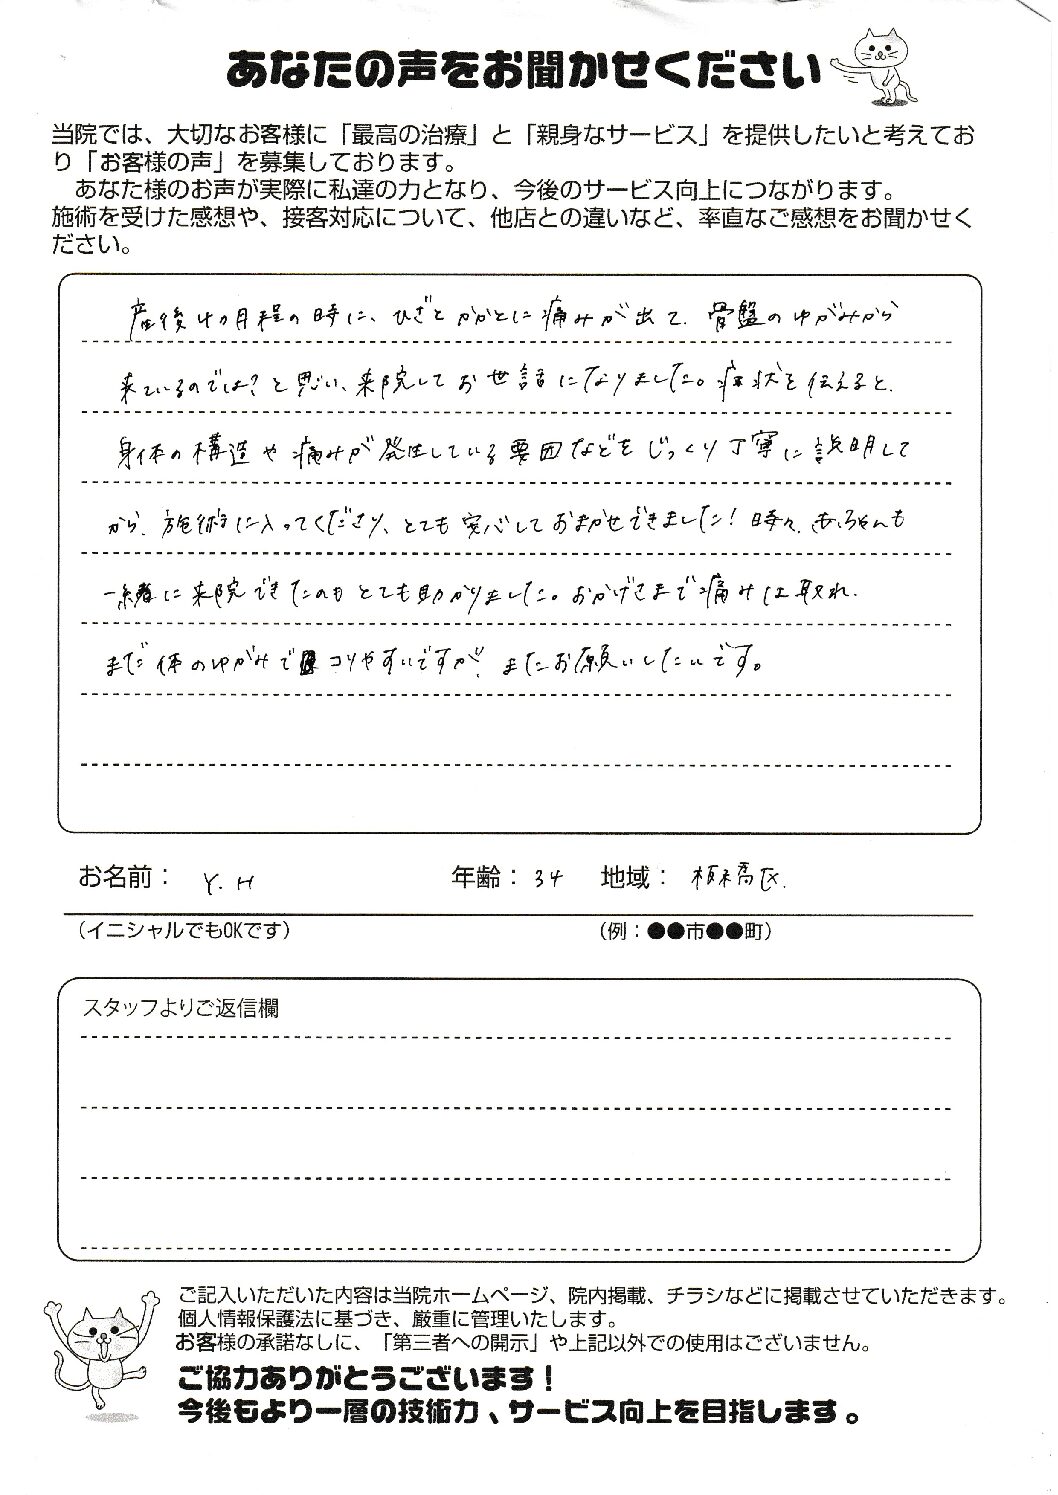 あなたの声をお聞かせください
当院では、大切なお客様に「最高の治療」と「親身なサービス」を提供したいと考えてお
り「お客様の声」を募集しております。
あなた様のお声が実際に私達の力となり、今後のサービス向上につながります。
施術を受けた感想や、接客対応について、他店との違いなど、率直なご感想をお聞かせく
ださい。
産後4ヵ月程の時に、ひざとかかとに痛みが出て、骨盤のゆがみから
来ているのでは?と思い、来院してお世話になりました。症状を伝えると、
身体の構造や痛みが発生している要因などをじっくり丁寧に説明して
から、施術に入ってくださり、とても安心しておまかせできました!時々、赤ちゃんも
一緒に来院できたのもとても助かりました。おかげさまで痛みは取れ、
まだ体のゆがみでコリやすいですが、またお願いしたいです。
お名前： Y.H 年齢：34 地域：板橋区.
（イニシャルでもOKです） （例：●●市●●町）
スタッフよりご返信欄
ご記入いただいた内容は当院ホームページ、院内掲載、チラシなどに掲載させていただきます。
個人情報保護法に基づき、厳重に管理いたします。
お客様の承諾なしに、「第三者への開示」や上記以外での使用はございません。
ご協力ありがとうございます！
今後もより一層の技術力、サービス向上を目指します。